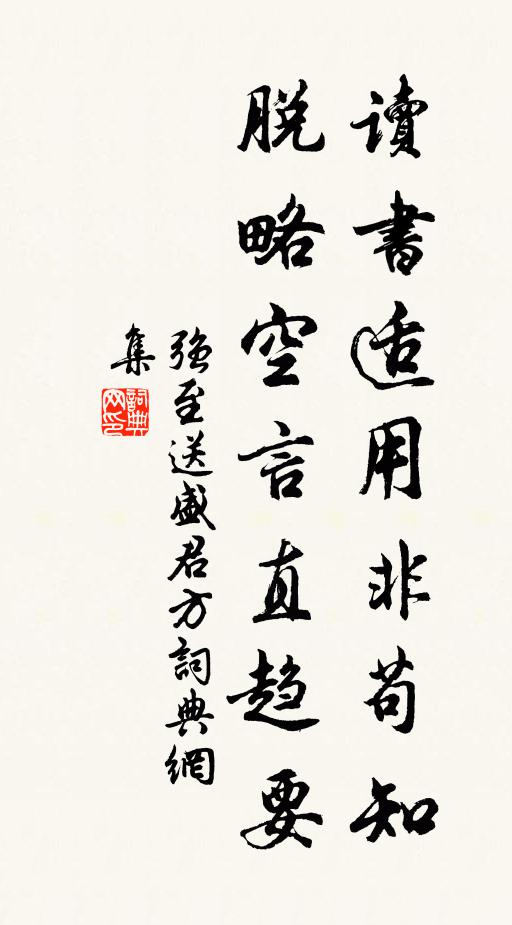 讀書适用非苟知
脱略空言直趋要
强至送盛君方詞典網
集
詞典
网印